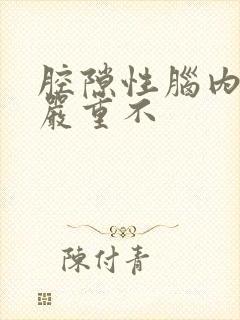 腔隙性腦內
嚴重不
陳付青